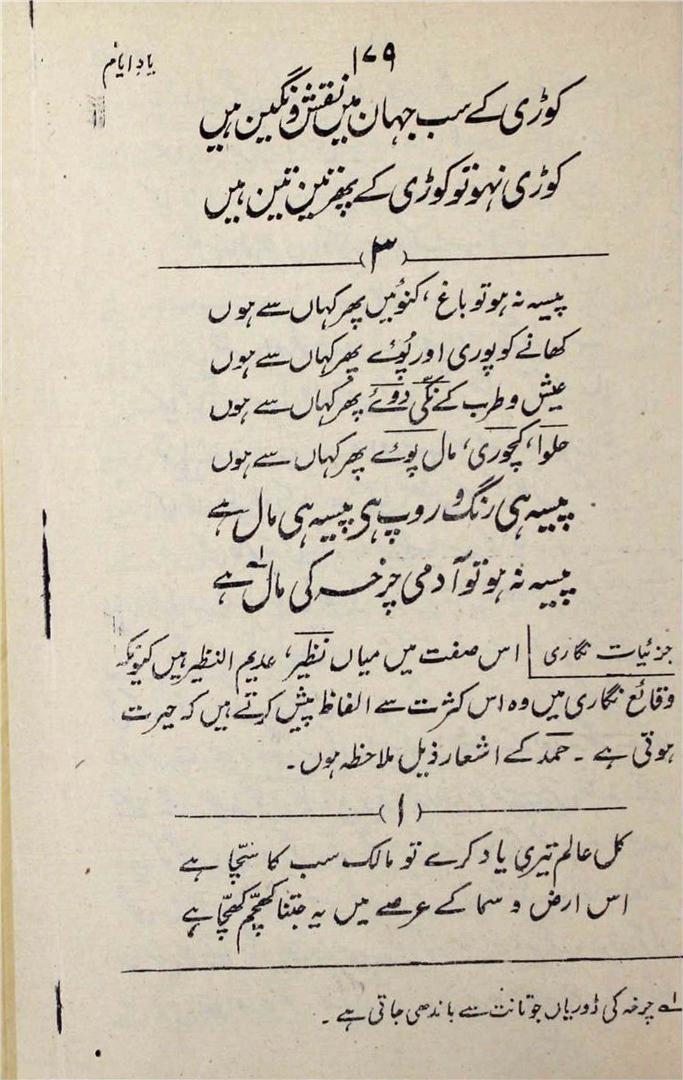 یادِ ایام
۱۷۹
کوڑی کے سب جہان میں نقش ونگین ہیں
کوڑی نہو تو کوڑی کے پھر تین تین ہیں
(۳)
پیسہ نہ ہو تو باغ، کنوئیں پھر کہاں سے ہوں
کھانے کو پوری اور پُوئے پھر کہاں سے ہوں
عیش و طرب کے نکّی دوئے پھر کہاں سے ہوں
حلوا، کچوری، مال پوئے پھر کہاں سے ہوں
پیسہ ہی رنگ و روپ ہی پیسہ ہی مال ہے
پیسہ نہ ہو تو آدمی چرخہ کی مال ہے
جزئیات نگاری | اس صفت میں میاں نظیر، عدیم النظیر ہیں کیونکہ
وقائع نگاری میں وہ اس کثرت سے الفاظ پیش کرتے ہیں کہ حیرت
ہوتی ہے ۔ حمد کے اشعار ذیل ملاحظہ ہوں۔
(۱)
کل عالم تیری یاد کرے تو مالک سب کا سچّا ہے
اس ارض و سما کے عرصے میں یہ جتنا کھچّم کھچّا ہے
۱ے چرخہ کی ڈوریاں جو تانت سے باندھی جاتی ہے ۔